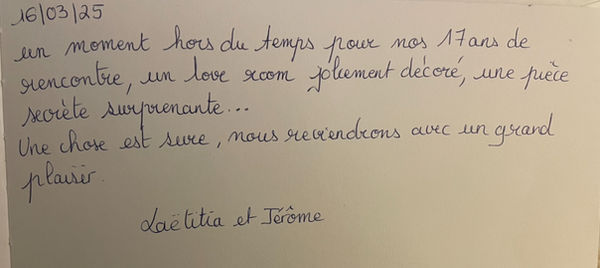 16/03/25
un moment hors du temps pour nos 17 ans de
rencontre, un love room joliement décoré, une pièce
secrète surprenante...
Une chose est sure, nous reviendrons avec un grand
plaisir.
Laëtitia et Jérôme